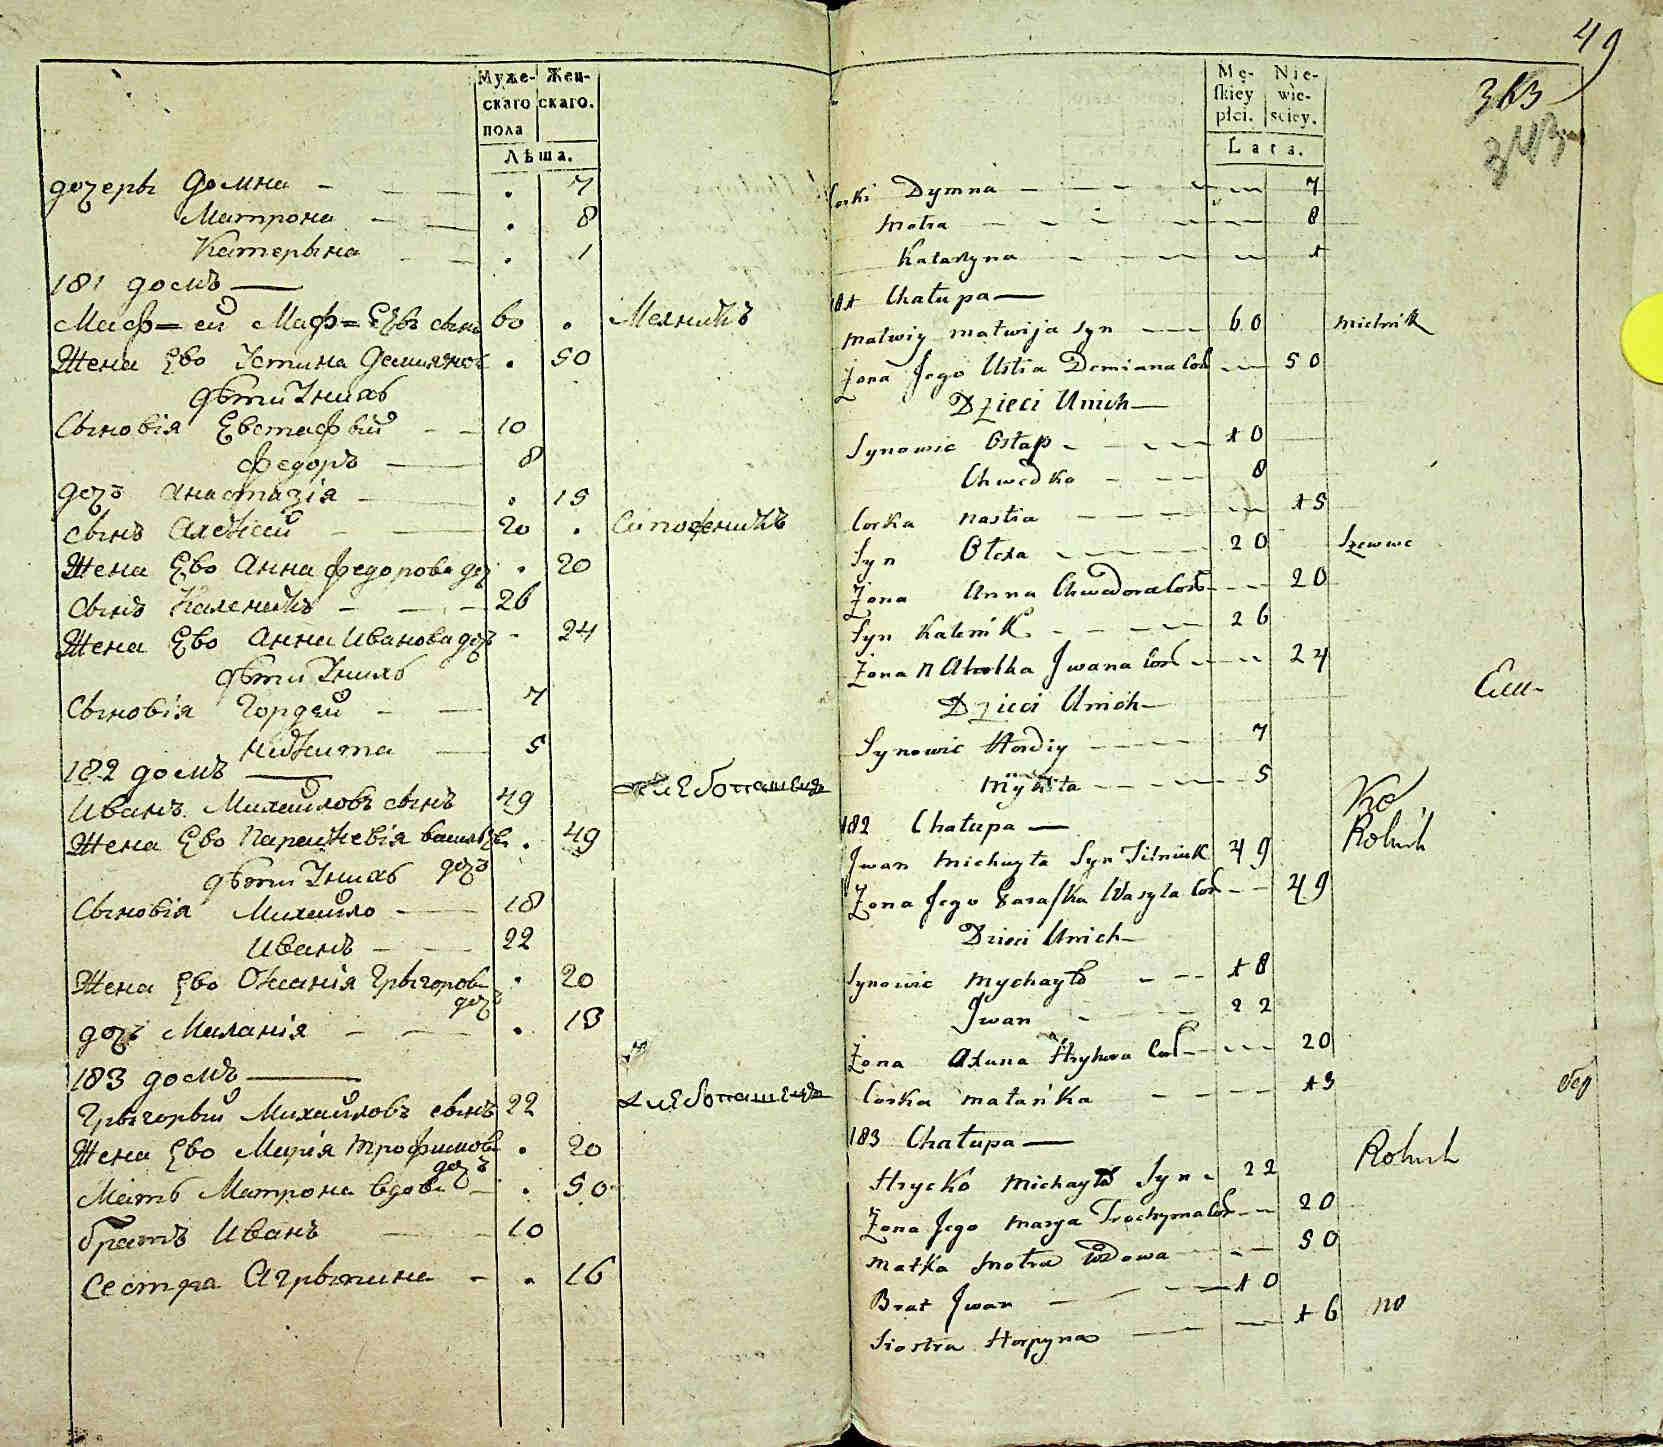 Муже- Жен-
скаго скаго.
пола
Лѣта.
дочеры Домна 7
Матрона 8
Катерына 1
181 домъ
Матѳей Матѳеевъ сынъ 60 Мелникъ
Жена Ево Устина Демиянов 50
Дѣти Унихъ
Сыновія Евстафѣй 10
Федоръ 8
дочъ Анастазія 15
сынъ Алексей 20 Сапожникъ
Жена Ево Анна Федорова доч 20
сынъ Каленикъ 26
Жена Ево Анна Иванова дочъ 24
Дѣти Унихъ
Сыновія Гордей 7
Никита 5
182 домъ
Иванъ Михайловъ сынъ 49 хлебопашецъ
Жена Ево Параскевія Василье 49
дочъ
Дѣти Унихъ
Сыновія Михайло 18
Иванъ 22
Жена Ево Оксанія Грыгоров 20
дочъ
дочъ Миланія 13
183 домъ
Грыгорый Михайловъ сынъ 22 хлебопашецъ
Жена Ево Марія Трофимова 20
дочъ
Мать Матрона вдова 50
братъ Иванъ 10
Сестра Агрыпина 16
49
Mę- Nie-
skiey wie-
płci. sciey.
Lata.
343
Corki Dymna 7
Motra 8
Katarzyna 1
181 Chałupa
Matwiy Matwija Syn 60 Mielnik
Zona Jego Ustia Demiana Cor 50
Dzieci Unich
Synowie Ostap 10
Chwedko 8
Corka Nastia 15
Syn Olexa 20 Szewwc
Zona Anna Chwedora Cor 20
Syn Kalenik 26
Zona Iwana Cor 24
Dzieci Unich
Synowie Hordiy 7
Mykita 5
182 Chałupa
Iwan Michayła Syn 49 Rolnik
Zona Jego Paraska Wasyla Cor 49
Dzieci Unich
Synowie Mychayło 18
Iwan 22
Zona Axuna Hryhora Cor 20
Corka Małanka 13
183 Chałupa
Hrycko Michayło Syn 22 Rolnik
Zona Jego Marya Trochyma Cor 20
Matka Motra Wdowa 50
Brat Iwan 10
Siostra Horpyna 16 по